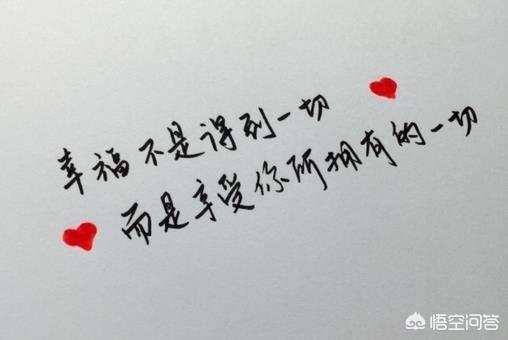 幸福不是得到一切
而是享受你所拥有的一切
悟空问答